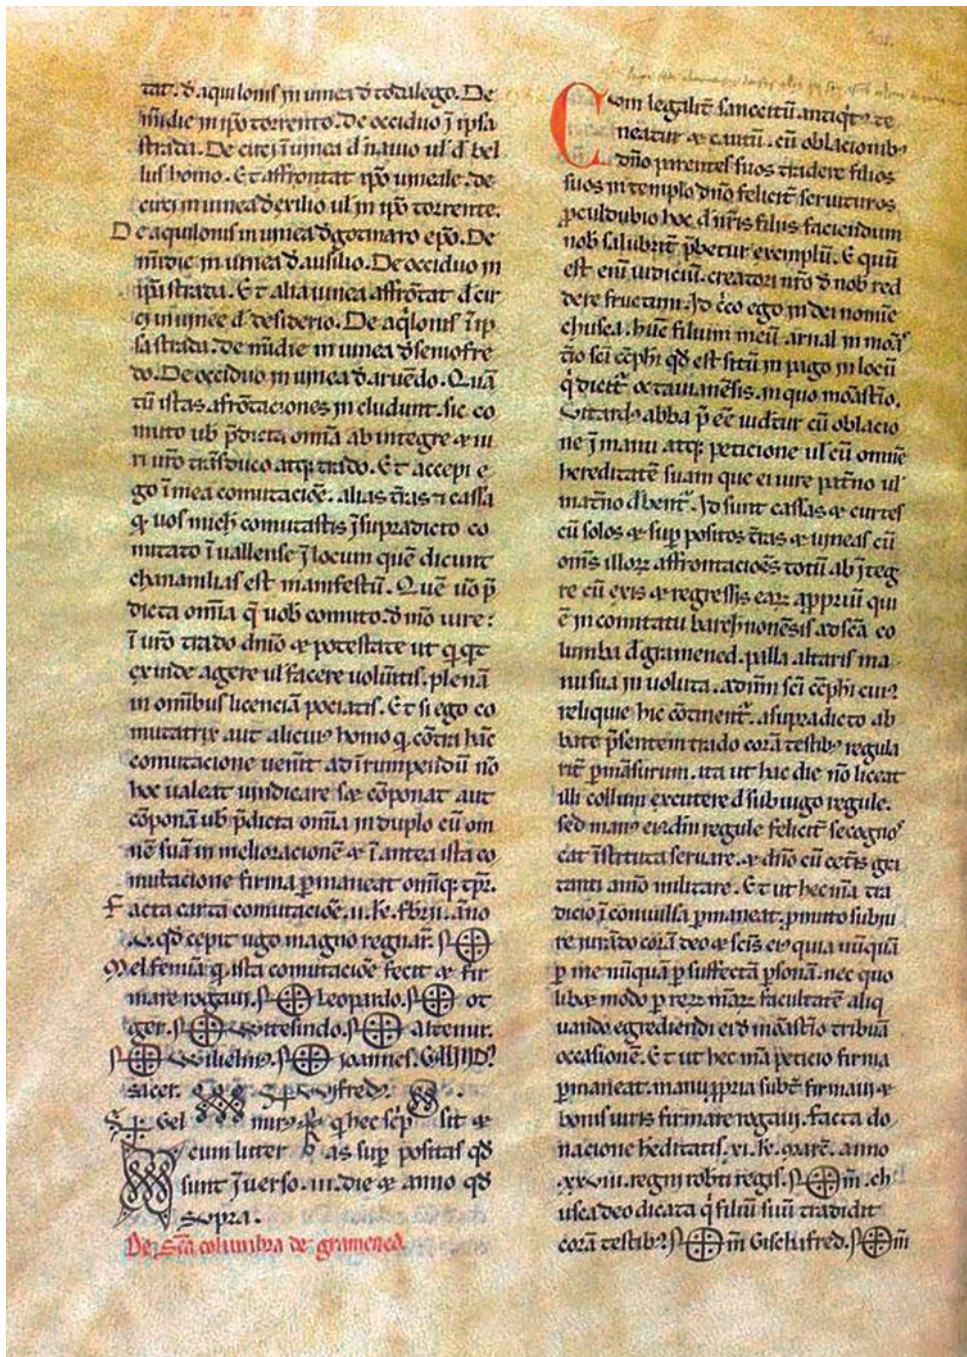 tat. d̄ aquilonis in uinea d̄ todalego. De
m̄idie in ip̄o torrento. De occiduo ī ipsa
strada. De circi ī uinea d̄ nauio ul' d̄ bel
lus homo. Et affrontat ip̄o uineale. de
circi in uinea d̄ exilio ul' in ip̄o torrente.
De aquilonis in uinea d̄ gotmaro ep̄o. De
m̄idie in uinea d̄ ausilio. De occiduo in
ip̄a strada. Et alia uinea affrōtat d̄ cir
ci in uinee d̄ desiderio. De aq̄lonis ī ip
sa strada. de m̄idie in uinea d̄ seniofre
do. De occiduo in uinea d̄ aruēdo. Quā
tū istas afrōtaciones in cludunt. sic co
muto uob p̄dicta om̄ia ab integre & iu
ri ur̄o trāsduco atq; trado. Et accepi e
go ī mea comutaciōe. alias t̄ras & cassa
q̄ uos mich̄ comutastis ī supradicto co
mitato ī uallense ī locum quē dicunt
chanamilias est manifestū. Quē uō p̄
dicta om̄ia q̄ uob comuto. d̄ m̄o iure:
ī ur̄o trado dn̄io & potestate ut q̄ q̄t
exinde agere ul' facere uolūtis. plenā
in om̄ibus licenciā pociatis. Et si ego co
mutatrix aut alicuis homo q̄ cōtra hāc
comutacione uen̄it ad irrumpendū nō
hoc ualeat uindicare s& cōponat aut
cōponā ub p̄dicta om̄ia in duplo cū om
nē suā in melioracionē & ī antea ista co
mutacione firma p̄maneat om̄iq; tp̄r.
Facta carta comutaciōe. ii. k̄. fb̄rii. āno
qd̄ cepit ugo magno regnar̄. S
Mel femīa q̄ ista comutaciōe fecit & fir
mare rogaui. S Leopardo. S ot
ger. S Wittesindo. S altemir.
S Wilielm9. S Joannes.
sacer. S Wifred9
S Gel mir9 q̄ hec sc̄p sit &
cum litter as sup̄ positas qd̄
sunt ī uerso. iii. die & anno qd̄
supra.
De Sc̄a columba de gramened
Com legalit̄ sanccitū antiq̄t9 te
neatur & cautū. cū oblacionib9
dn̄o parentes suos tradere filios
suos in templo dn̄o felicit̄ seruituros
p̄culdubio hoc d̄ n̄ris filiis faciendum
nob salubrit̄ p̄betur exemplū. Equū
est enī iudiciū. creatori n̄ro d̄ nob red
dere fructum. Id c̄co ego in dei nomīe
chusca. hūc filium meū. arnal in moās
t̄io sc̄i cc̄phi qd̄ est sitū in pago in locū
q̄ dicit̄ octauianēsis. in quo moāst̄io.
Witard9 abba p̄ eē uid̄tur cū oblacio
ne ī manu atq; peticione ul' cū omnē
hereditatē suam que ei iure pat̄no ul'
mat̄no d̄bent̄. Id sunt cassas & curtes
cū solos & sup̄ positos t̄ras & uineas cū
om̄s illorꝝ affrontaciōes totū ab īteg
re cū exis & regressis earꝝ a p̄priū qui
ē in comitatu barch̄nonēsis ad sc̄a co
lumba d̄ gramened. palla altaris ma
nu sua in uoluta. ad nm̄ sc̄i cc̄phi cui9
reliquie hic cōtinent̄. a supradicto ab
bate p̄sentem trado corā testib9 regula
rit̄ p̄māsurum. ita ut hac die nō liceat
illi collum excutere d̄ sub iugo regule.
sed magis eiusd̄m regule felicit̄ se cognos
cat īstituta seruare. & dn̄o cū cet̄is gra
tanti animo militare. Et ut hec m̄a tra
dicio ī conuulsa p̄maneat. p̄mitto subiu
re iurādo corā deo & sc̄is ei9 quia nūquā
p̄ me nūquā p̄ suffectā p̄sonā. nec quo
lib& modo p̄ rerꝝ m̄arꝝ facultatē aliq̄
uando egrediendi ei d̄ moāst̄io tribuā
occasionē. Et ut hec m̄a peticio firma
p̄maneat. manu p̄pria subt̄ firmaui &
bonis uiris firmare rogaui. facta do
nacione h̄editatis. xi. k̄. marc̄. anno
.xxviii. regni rob̄ti regis. S m̄. ch
usca deo dicata q̄ filiū suū tradidit
corā testib9. S m̄ Gischafred. S m̄